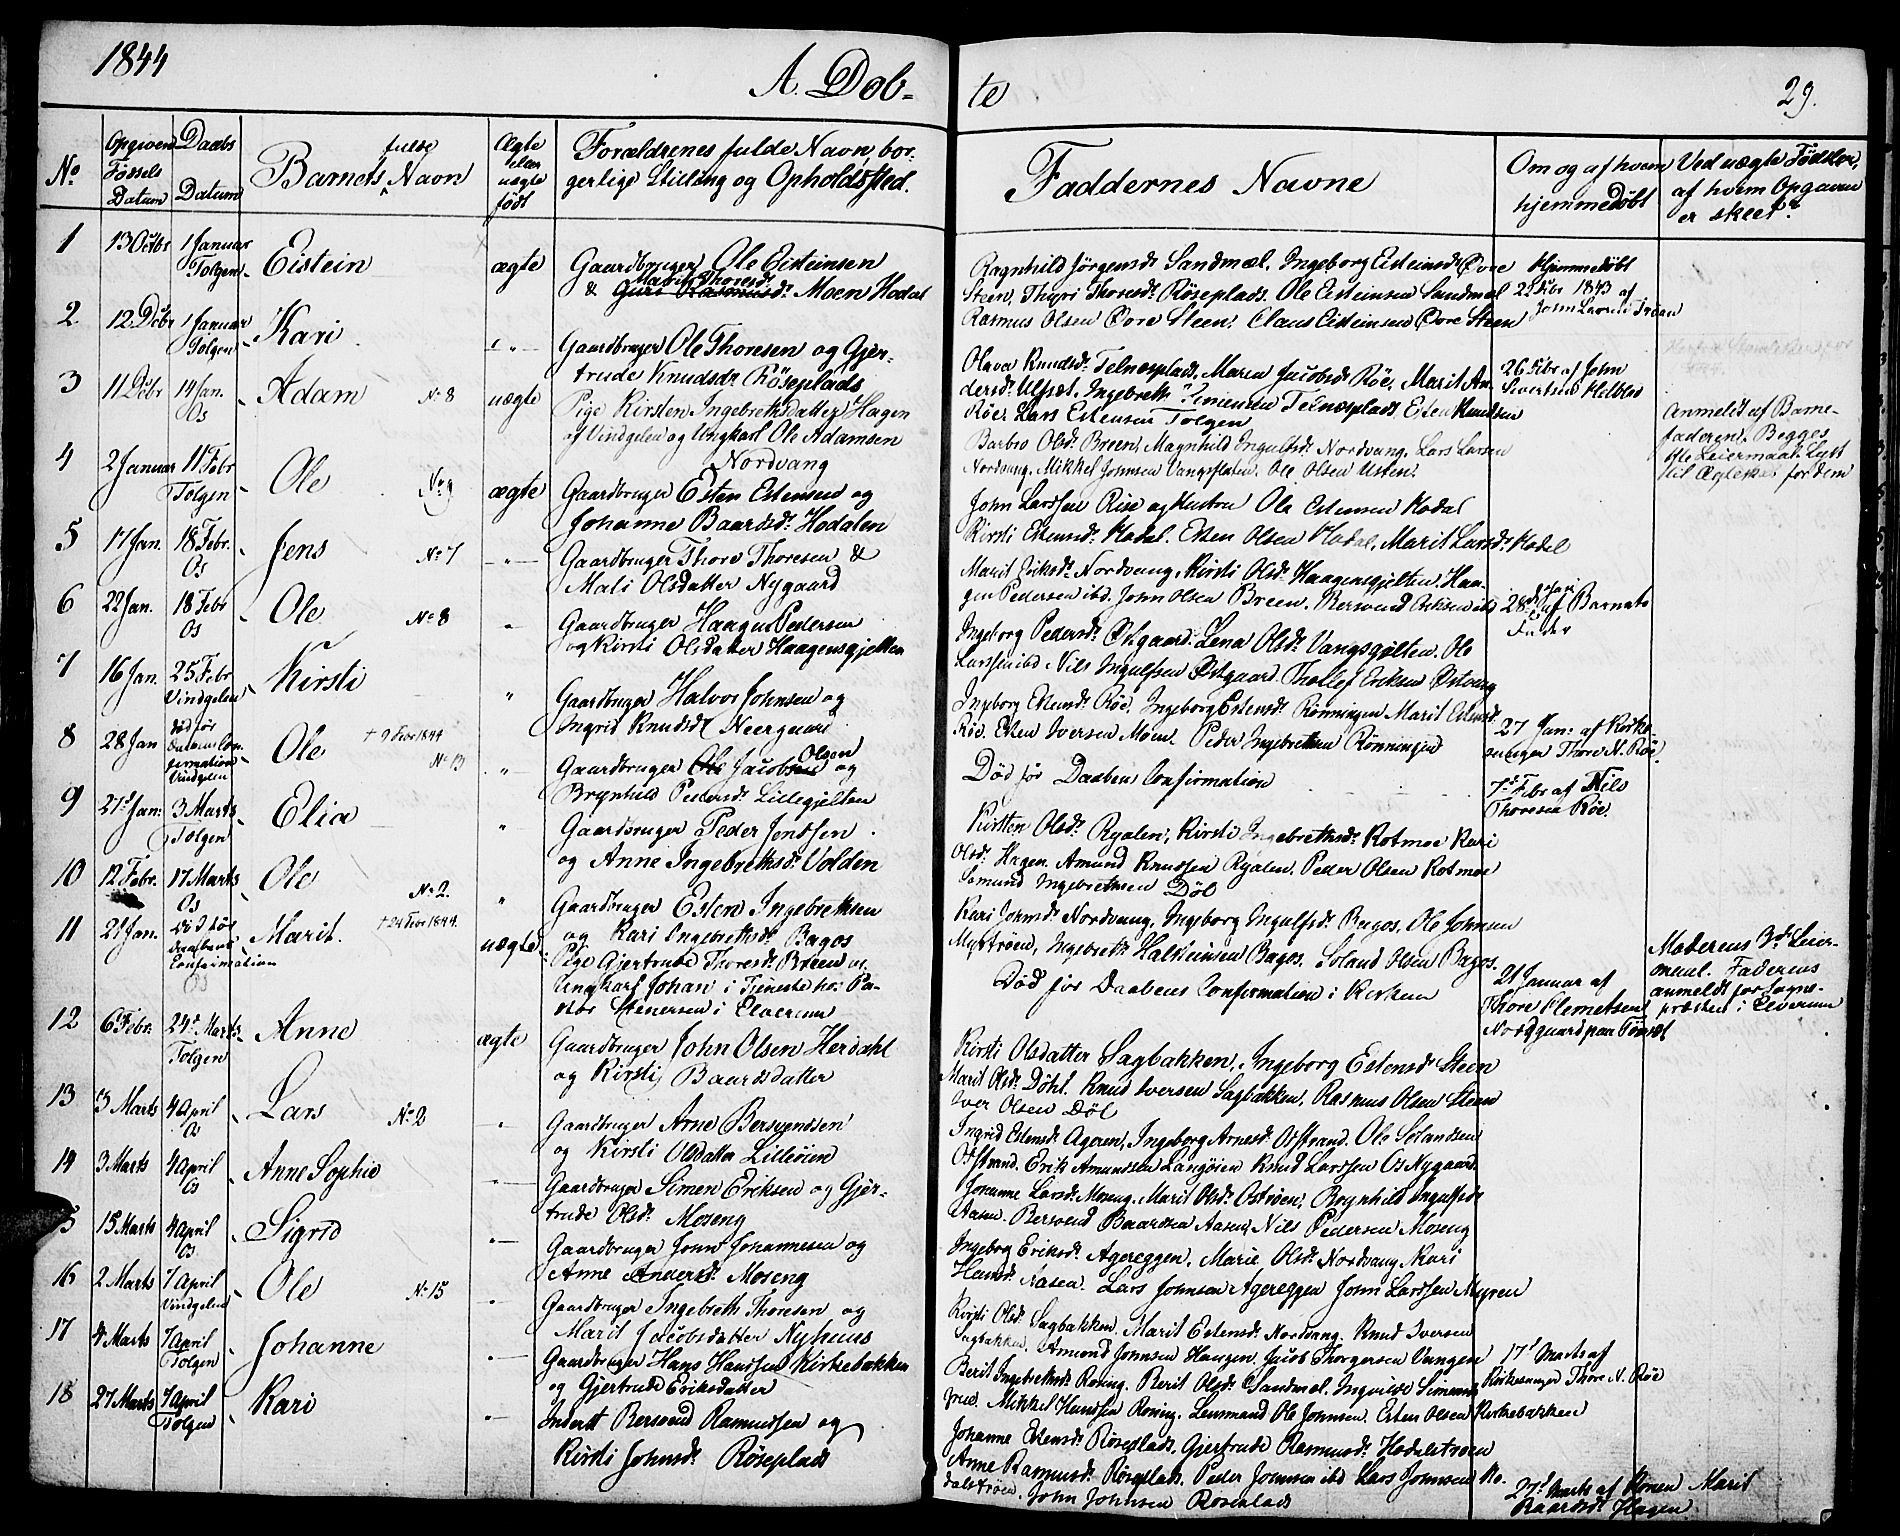 1844
A. Døb-
te
29.
No
Opgiven Fødsels Datum
Daabs Datum
Barnets fulde Navn
Ægte eller uægte født
Forældrenes fulde Navn, bor-
gerlige Stilling og Opholdssted.
Faddernes Navne
Om og af hvem
hjemmedøbt
Ved uægte Fødsler,
af hvem Opgaven
er skeet?
1 13 Octbr 1 Januar Tolgen Eistein ægte Gaardbruger Ole Eisteinsen
& Guri Rasmusdr Marit Thoresdr Moen Hodal
Ragnhild Jörgensdr Sandmæl, Ingeborg Eisteinsdr Øvre
Steen, Thyri Thoresdr Röseplads. Ole Eisteinsen Sandmæl
Rasmus Olsen Øvre Steen, Claus Eisteinsen Øvre Steen
Hjemmedøbt
22 Dcbr 1843 af
John Larsen Tröan
2 12 Dcbr 1 Januar Tolgen Kari Gaardbruger Ole Thoresen og Gjer-
trude Knudsdr Röseplads
Olava Knudsdr Telnæsplads, Maren Jacobsdr Röe, Marit An-
dersdr Ulfset, Ingebreth Simensen Telnæsplads, Esten Knudsen
Röe, Lars Estensen Tolgen
26 Dcbr af John
Sivertsen
3 11 Dcbr 14 Jan. Os Adam No 8 uægte Pige Kirsten Ingebrethsdatter Hagen
af Vindgelen og Ungkarl Ole Adamsen
Nordvang
Barbro Olsdr Breen, Magnhild Ingulfsdr Nordvang, Lars Larsen
Nordvang, Mikkel Johnsen Vangsfladen, Ole Olsen Usten.
Anmeldt af Barne-
faderen. Begges
1ste Leiermaal. Lyst
til Ægteskab for dem
4 2 Januar 11 Febr Tolgen Ole No 9 ægte Gaardbruger Esten Estensen og
Johanne Baardsdr Hodalen
John Larssen Rise og Kustru Ole Estensen Hodal
Kirsti Estensdr Hodal. Esten Olsen Hodal, Marit Larsdr Hodal
5 17 Jan. 18 Febr. Os Jens No 7 Gaardbruger Thore Thoresen &
Mali Olsdatter Nygaard
Marit Eriksdr Nordvang, Kirsti Olsdr Haagensgjelten, Haa-
gen Pedersen ibd. John Olsen Breen. Bersvend Eriksen ibd
6 22 Jan. 18 Febr Os Ole No 8 Gaardbruger Haagen Pedersen
og Kirsti Olsdatter Haagensgjelten
Ingeborg Pedersdr Østgaard. Lena Olsdr Vangsgjelten. Ole
Larssen ibd Nils Ingulfsen Østgaard. Thollef Eriksen Østvang
28de Jan. af Barnets
Fader
7 16 Jan. 25 Febr Vindgelen Kirsti Gaardbruger Halvor Johnsen og
Ingrid Knudsdr Neergaard
Ingeborg Estensdr Röe. Ingeborg Estensdr Rönningen Marit Estensdr
Röe. Esten Iversen Moen. Peder Ingebrethsen Rönningen
27 Jan: af Kirke-
sanger Thore N. Röe.
8 28 Jan Død før Daabens Con-
firmation Vindgelen Ole † 9 Febr 1844 No 13 Gaardbruger Ole Jacobsen Olsen og
Brynhild Pedersdr Lillegjelten
Død før Daabens Confirmation
7de Febr af Nils
Thoresen Röe
9 27de Jan: 3 Marts Tolgen Elia Gaardbruger Peder Jonssen
og Anne Ingebrethsdr Volden
Kirsten Olsdr Ryalen, Kirsti Ingebrethsdr Kotmoe Kari
Olsdr Hagen. Amund Knudsen Ryalen. Peder Olsen Kotmoe
Samund Ingebrethsen Döl
10 12 Febr. 17 Marts Os Ole No 2. Gaardbruger Esten Ingebrethsen
og Kari Ingebrethsdr Bagos
Kari Jonsdr Nordvang, Ingeborg Ingulfsdr Bagos, Ole Johnsen
Myrtröen, Ingebreth Halsteinsen Bagos. Erland Olsen Bagos.
11 21 Jan. Død før Daabens Confirmation Os Marit. † 24 Febr 1844. uægte Pige Gjertrude Thoresdr Breen og
Ungkarl Johan i Tjeneste hos Pa-
stor Stenersen i Elverum
Død før Daabens Confirmation i Kirken
21 Januar af
Thore Clemetsen
Nordgaard paa Tönset
Moderens 3die Leier-
maal. Faderens
anmeldt for Sogne-
præsten i Elverum
12 6 Febr. 24de Marts Tolgen Anne ægte Gaardbruger John Olsen Herdahl
og Kirsti Baardsdatter
Kirsti Olsdatter Sagbakken, Ingeborg Estensdr Steen
Marit Olsdr Döhl. Knud Iversen Sagbakken, Rasmus Olsen Steen
Iver Olsen Döl
13 3 Marts 4 April Os Lars No 2 Gaardbruger Arne Bersvendsen
og Kirsti Olsdatter Lilleöien
Ingrid Estensdr Ageren, Ingeborg Arnesdr Osstrand. Ole Erlandsen
Osstrand. Erik Amundsen Langöien Knud Larssen Os Nygaard.
14 3 Marts 4 April Os Anne Sophie Gaardbruger Simen Eriksen og Gjer-
trude Olsdr Moseng
Johanne Larsdr Moseng. Marit Olsdr Oströen, Brynhild Ingulfsdr
Aasen. Bersvend Baardsen Aasen Nils Pedersen Moseng
15 15 Marts 4 April Os Sigrid Gaardbruger John Johannesen og
Anne Andersdr Moseng
Ingeborg Eriksdr Agereggen, Marie Olsdr Nordvang, Kari
Hansdr Aasen. Lars Johnsen Agereggen John Larssen Myren
16 2 Marts 7 April Vindgelen Ole No 15 Gaardbruger Ingebreth Thoresen og
Marit Jacobsdatter Nyhuus
Kirsti Olsdr Sagbakken. Marit Estensdr Nordvang. Knud Iversen
Sagbakken. Amund Johnsen Haugen. Jacob Thorgersen Vangen
17 4 Marts 7 April Tolgen Johanne Gaardbruger Hans Hanssen Kirkebakken
og Gjertrude Eriksdatter
Berit Ingebrethsdr Roning. Berit Olsdr Sandmæl. Ingvilde Simens
frue. Mikkel Hanssen Roning. Lensmand Ole Johnsen. Esten Olsen Kirkebakken
17de Marts af
Kirkesanger Thore N. Röe
18 27 Marts 7 April Tolgen Kari Inderst Bersvend Rasmussen og
Kirsti Johnsdr Röseplads
Johanne Estensdr Röseplads, Gjertrude Rasmusdr Hodalströen
Anne Rasmusdr Röseplads. Peder Johnsen ibd Lars Johnsen Ho-
dalströen. John Johnsen Röseplads
27de Marts af Konen Marit
Baardsdr Hagen